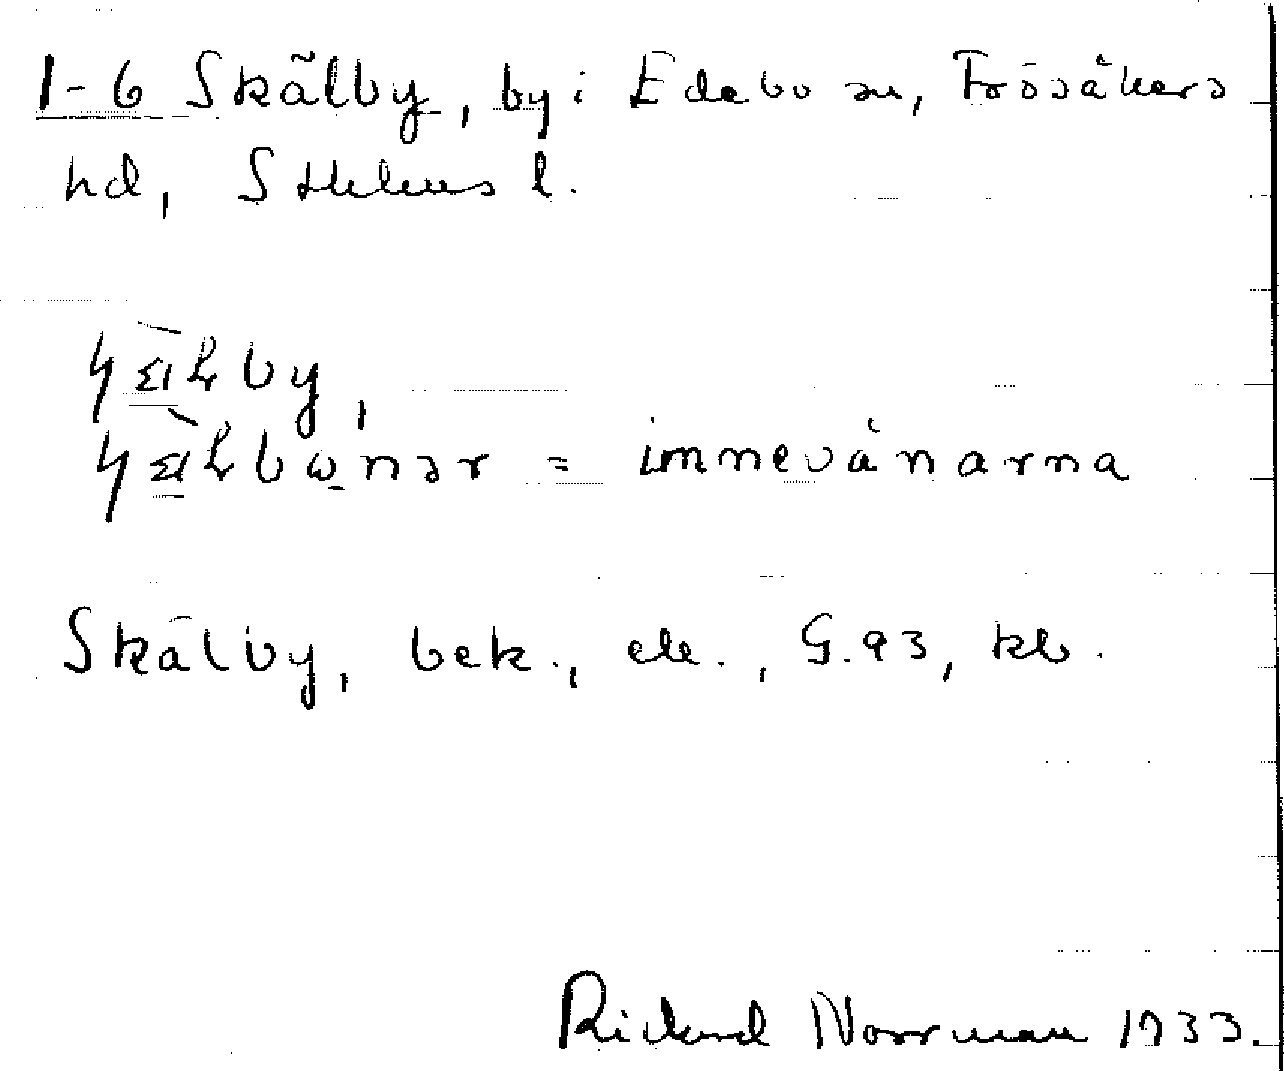 1-6 Skälby, by i Edebo sn, Frösåkers
hd, Sthlms l.
= innevånarna
Skälby, bek., ek., G.93, kb.
Rickard Norrman 1933.